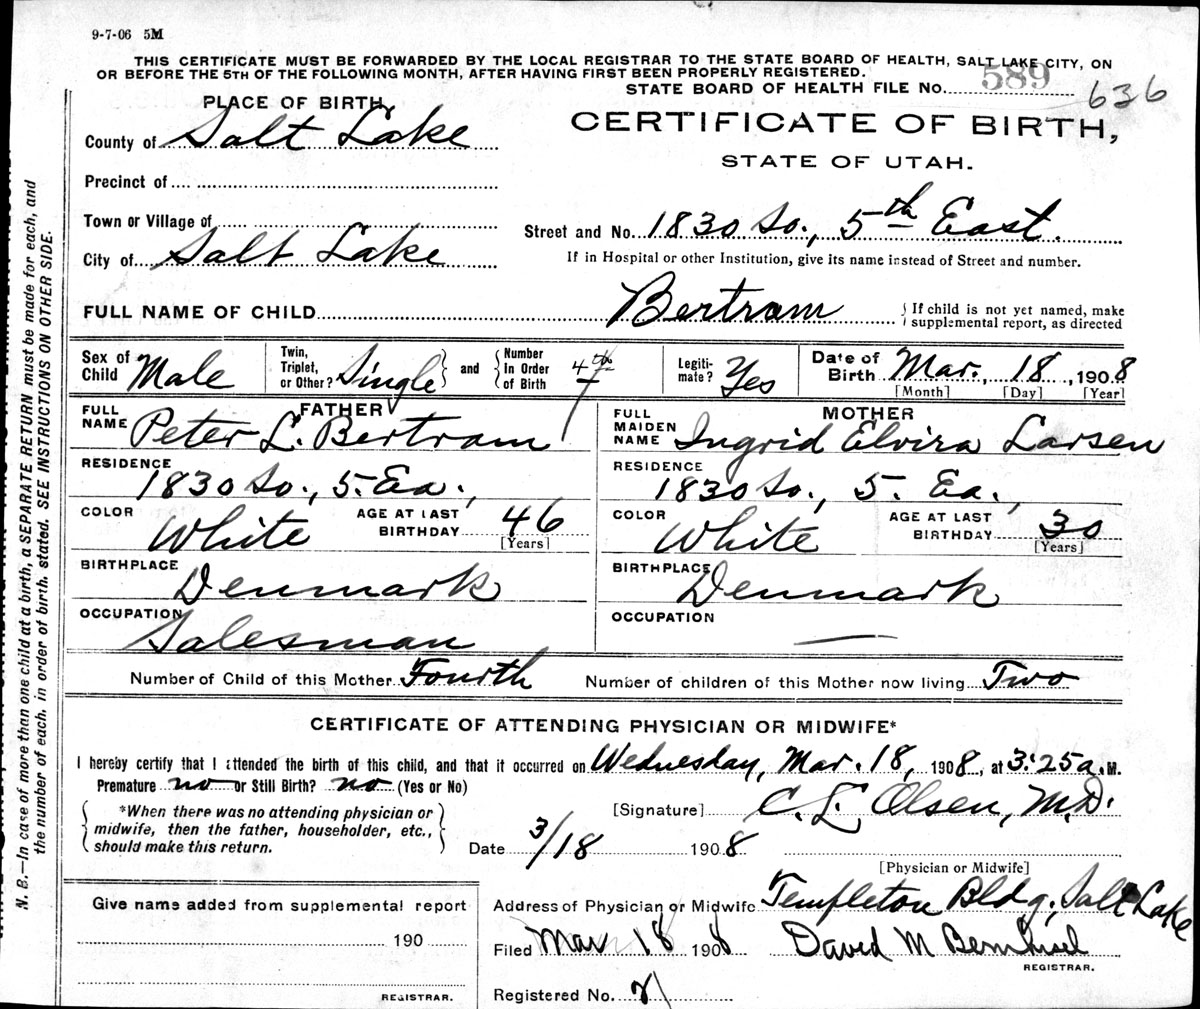 9-7-06 5M
THIS CERTIFICATE MUST BE FORWARDED BY THE LOCAL REGISTRAR TO THE STATE BOARD OF HEALTH, SALT LAKE CITY, ON
OR BEFORE THE 5TH OF THE FOLLOWING MONTH, AFTER HAVING FIRST BEEN PROPERLY REGISTERED.
STATE BOARD OF HEALTH FILE No. 589 636
PLACE OF BIRTH
CERTIFICATE OF BIRTH,
STATE OF UTAH.
County of Salt Lake
Precinct of
Town or Village of
City of Salt Lake
Street and No. 1830 So., 5th East.
If in Hospital or other Institution, give its name instead of Street and number.
FULL NAME OF CHILD Bertram
If child is not yet named, make
supplemental report, as directed
Sex of Child Male
Twin, Triplet, or Other? Single and Number In Order of Birth 4th
Legiti-mate? Yes
Date of Birth Mar., 18, 1908
[Month] [Day] [Year]
FATHER
FULL NAME Peter L. Bertram
RESIDENCE 1830 So., 5. Ea.,
COLOR White AGE AT LAST BIRTHDAY 46
[Years]
BIRTHPLACE Denmark
OCCUPATION Salesman
MOTHER
FULL MAIDEN NAME Ingrid Elvira Larsen
RESIDENCE 1830 So., 5. Ea.,
COLOR White AGE AT LAST BIRTHDAY 30
[Years]
BIRTHPLACE Denmark
OCCUPATION —
Number of Child of this Mother Fourth Number of children of this Mother now living Two
CERTIFICATE OF ATTENDING PHYSICIAN OR MIDWIFE*
I hereby certify that I attended the birth of this child, and that it occurred on Wednesday, Mar. 18, 1908, at 3:25 a. M.
Premature no or Still Birth? no (Yes or No)
*When there was no attending physician or
midwife, then the father, householder, etc.,
should make this return.
[Signature] C. L. Olsen, M.D.
Date 3/18 1908
[Physician or Midwife]
Give name added from supplemental report
190
REGISTRAR.
Address of Physician or Midwife Templeton Bldg., Salt Lake
Filed Mar 18 1908 David M Bernhisel
REGISTRAR.
Registered No.
N. B.—In case of more than one child at a birth, a SEPARATE RETURN must be made for each, and
the number of each, in order of birth, stated. SEE INSTRUCTIONS ON OTHER SIDE.